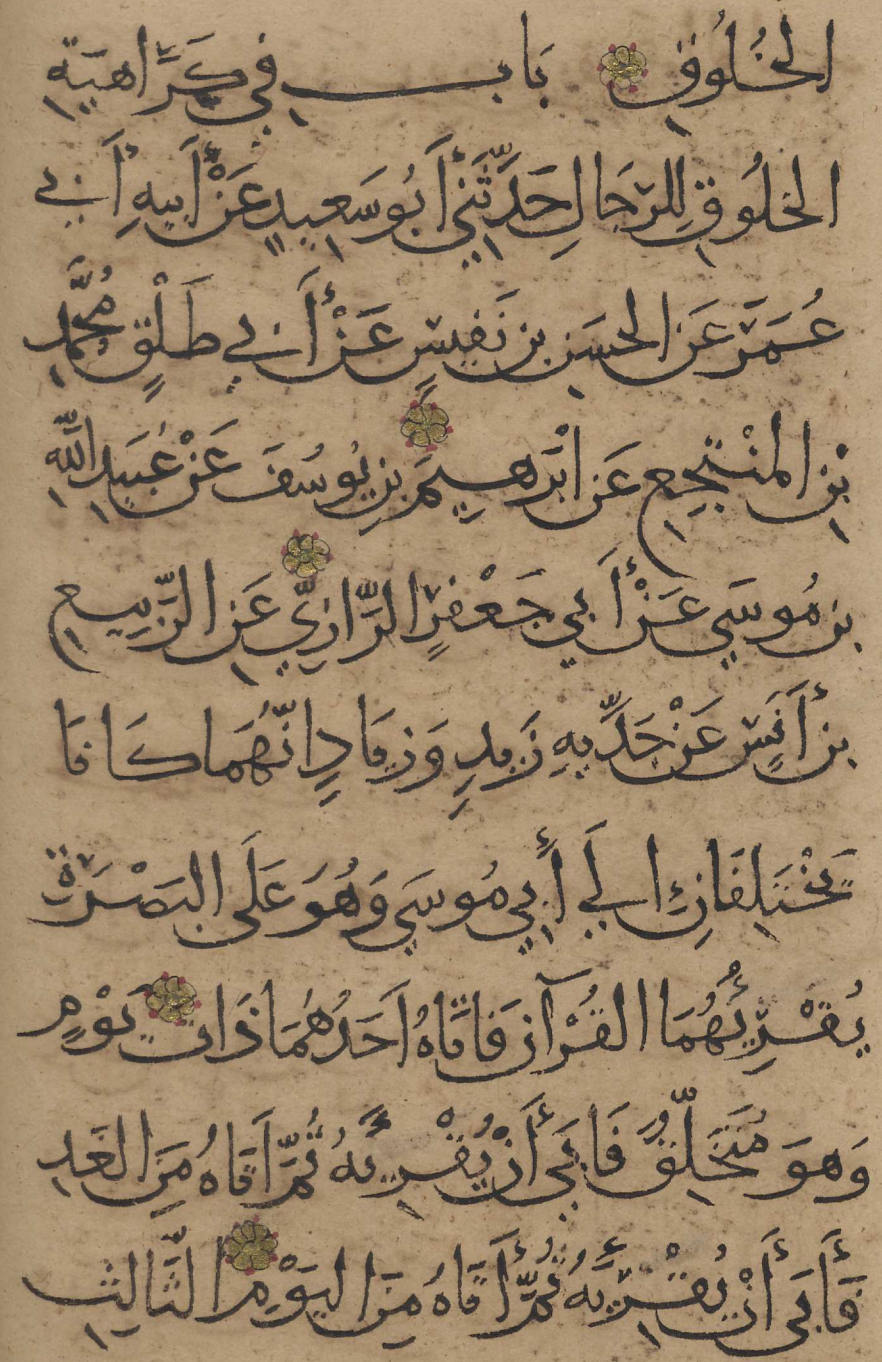 الخَلُوقِ بَابٌ فِي كَرَاهِيَةِ
الخَلُوقِ لِلرِّجَالِ حَدَّثَنِي أَبُو سَعِيدٍ عَنْ أَبِيهِ أَبِي
عُمَرَ عَنِ الحَسَنِ بنِ نَفِيسٍ عَنْ أَبِي طَلْقٍ مُحَمَّدِ
بْنِ المنْتَجِعِ عَنِ ابْرَهِيمَ بنِ يُوسُفَ عَنْ عُبَيدِ اللَّهِ
بنِ مُوسَى عَنْ أَبِي جَعْفَرٍ الرَّازِيِّ عَنِ الرَّبِيعِ
بنِ أَنَسٍ عَنْ جَدَّيهِ زَيدٍ وَزِيَادٍ انَّهُمَا كَانَا
يَخْتَلِفَانِ إلَى أَبِي مُوسَى وَهُوَ عَلَى البَصْرَةِ
يُقْرِئُهُمَا القُرْآنَ فَاتَاهُ احَدُهُمَا ذَاتَ يَوْمٍ
وَهوَ مُتَخَلِّقٌ فَابَى أَنْ يُقْرِئَهُ ثُمَّ اَتَاهُ مِنَ الغَدِ
فَأَبَى أَنْ يُقْرِئَهُ ثُمَّ أَتَاهُ مِنَ اليَوْمِ الثَّالِثِ